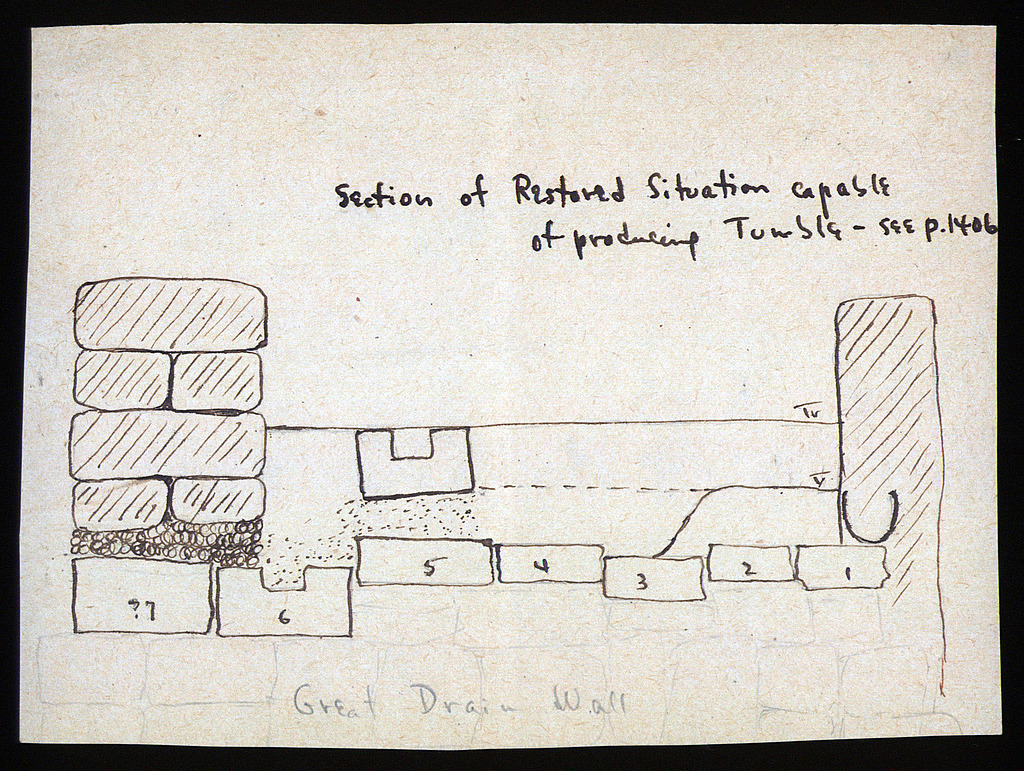 Section of Restored Situation capable
of producing Tumble - see p.1406
IV
V
5
4
3
2
1
??7
6
Great Drain Wall